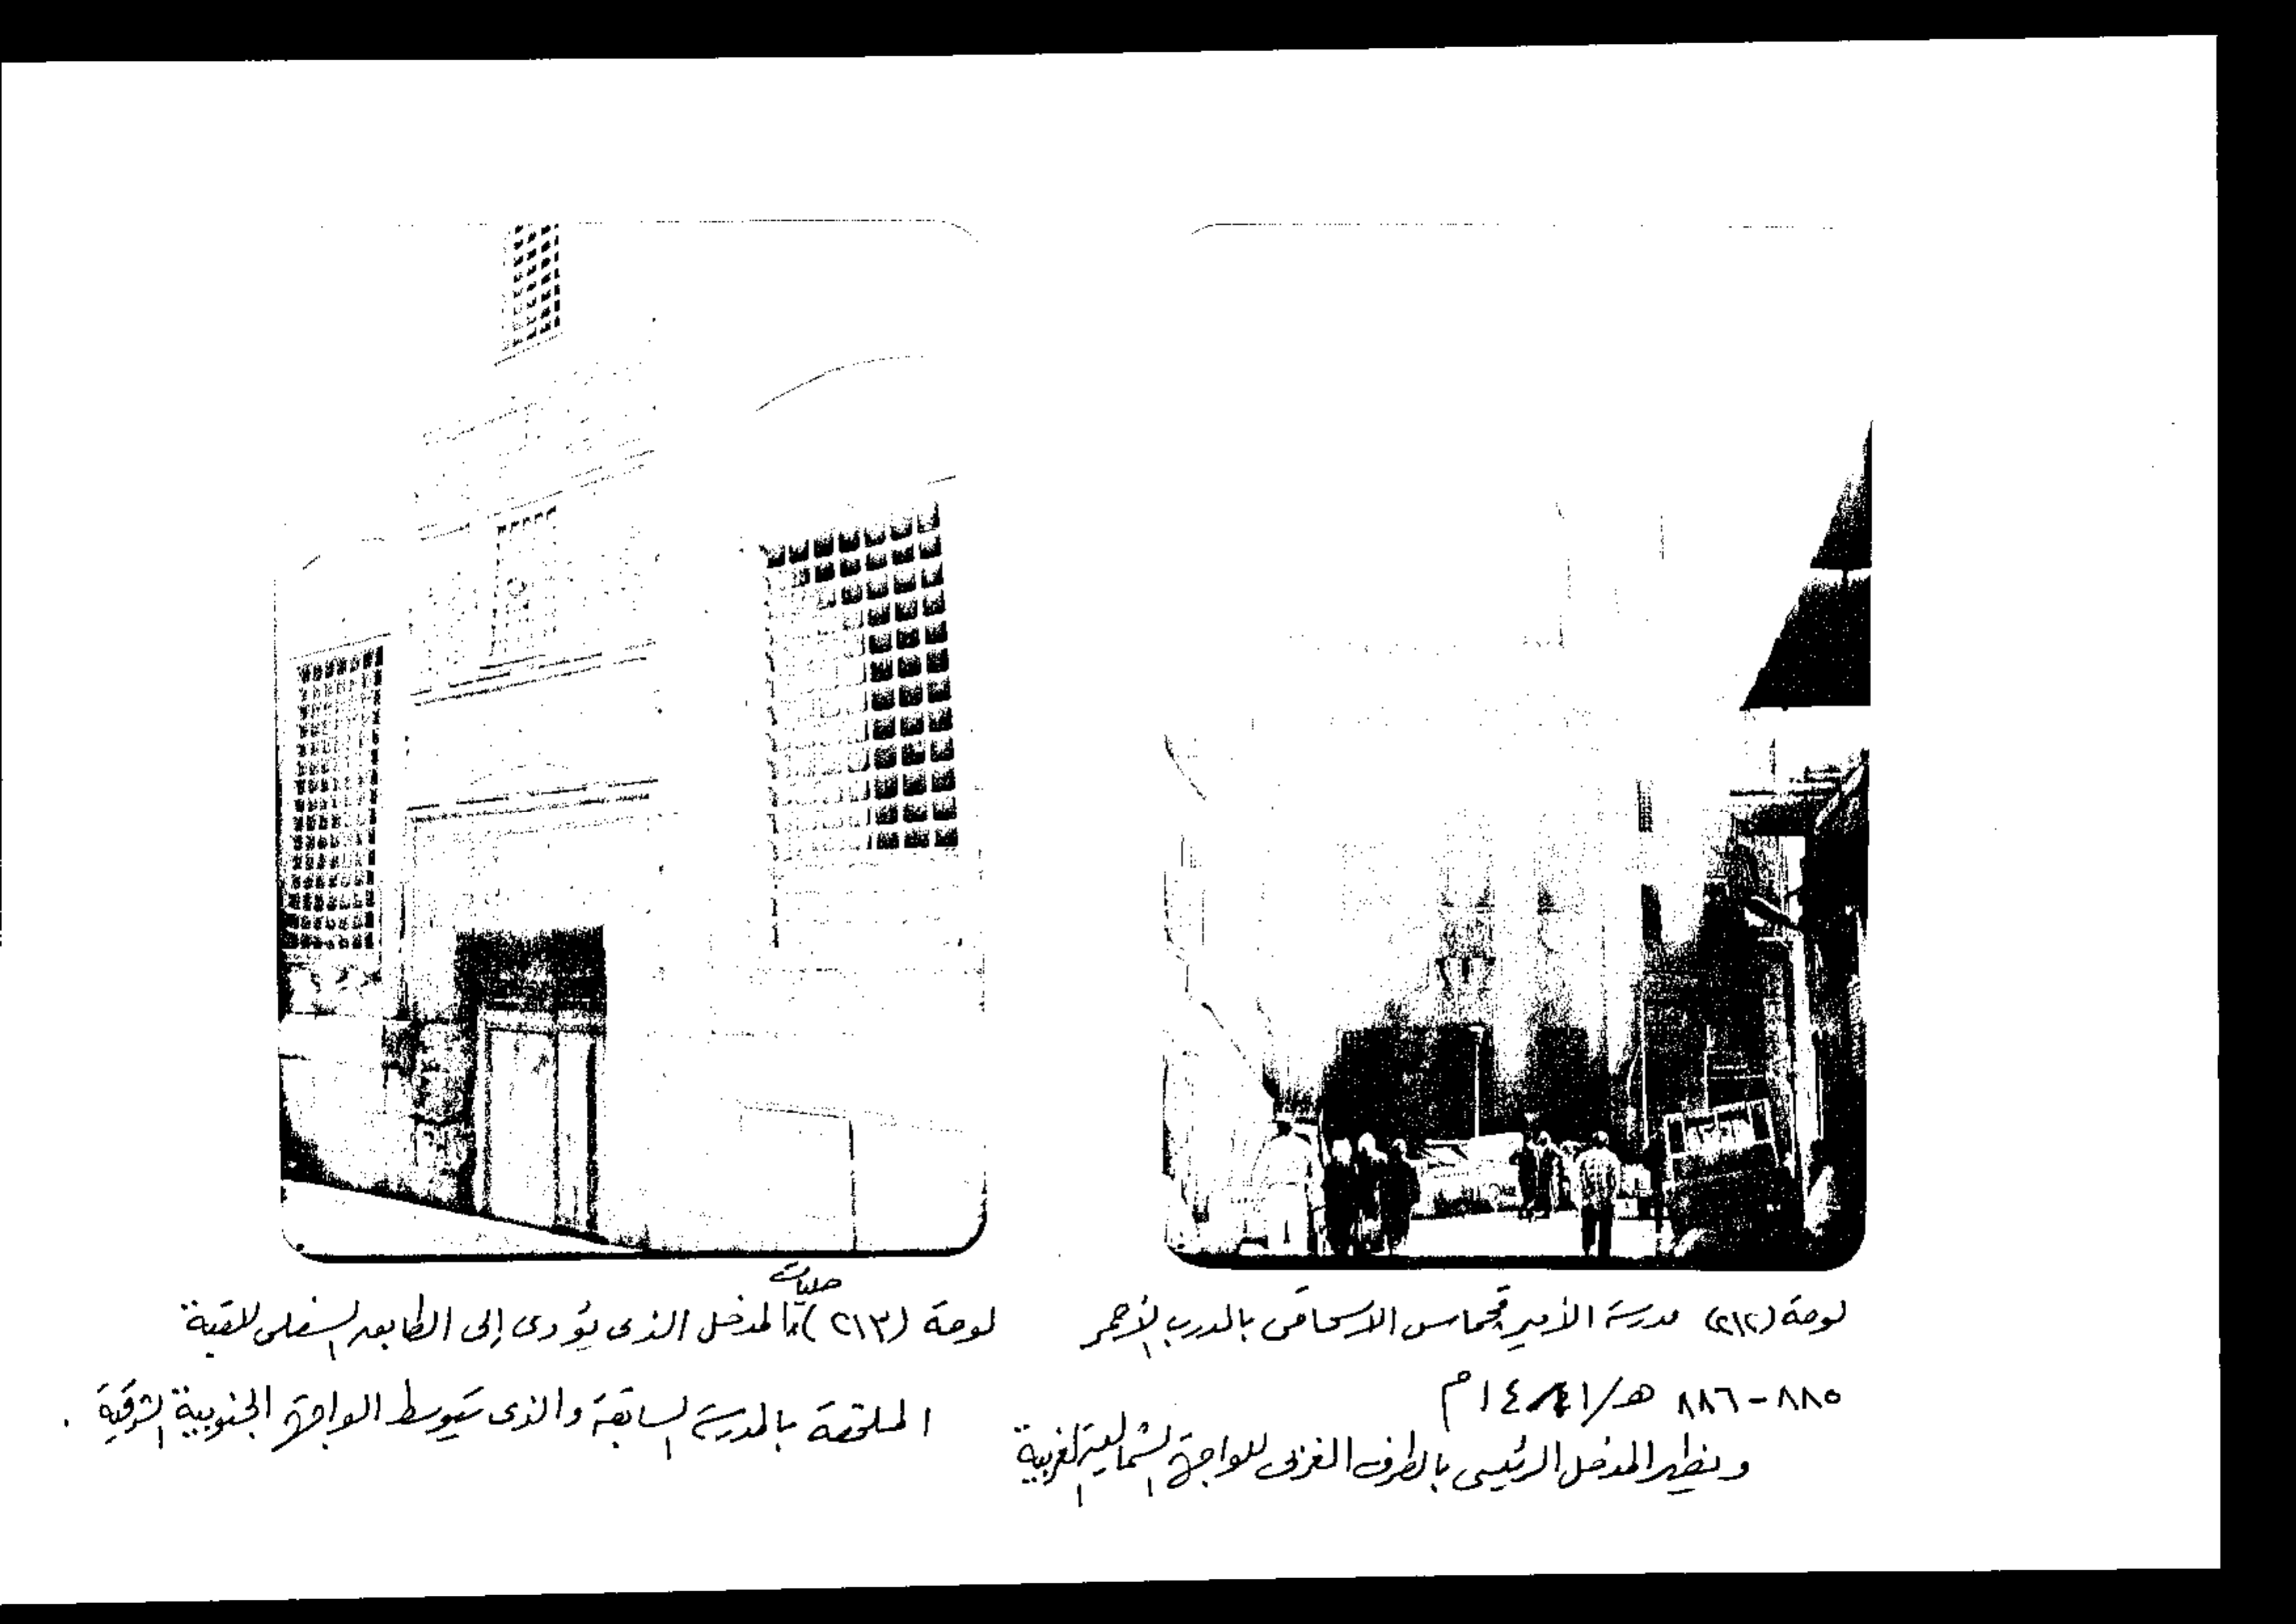 لوحة (٢١٢) مدرسة الأمير قجماس الاسحاقى بالدرب الأحمر
٨٨٥-٨٨٦ هـ/ ١٤م
ويظهر المدخل الرئيسى بالطرف الغربى للواجهة الشمالية الغربية
لوحة (٢١٣) حليات المدخل الذى يؤدى إلى الطابق السفلى للقبة
الملحقة بالمدرسة السابقة والذى يتوسط الواجهة الجنوبية الشرقية .